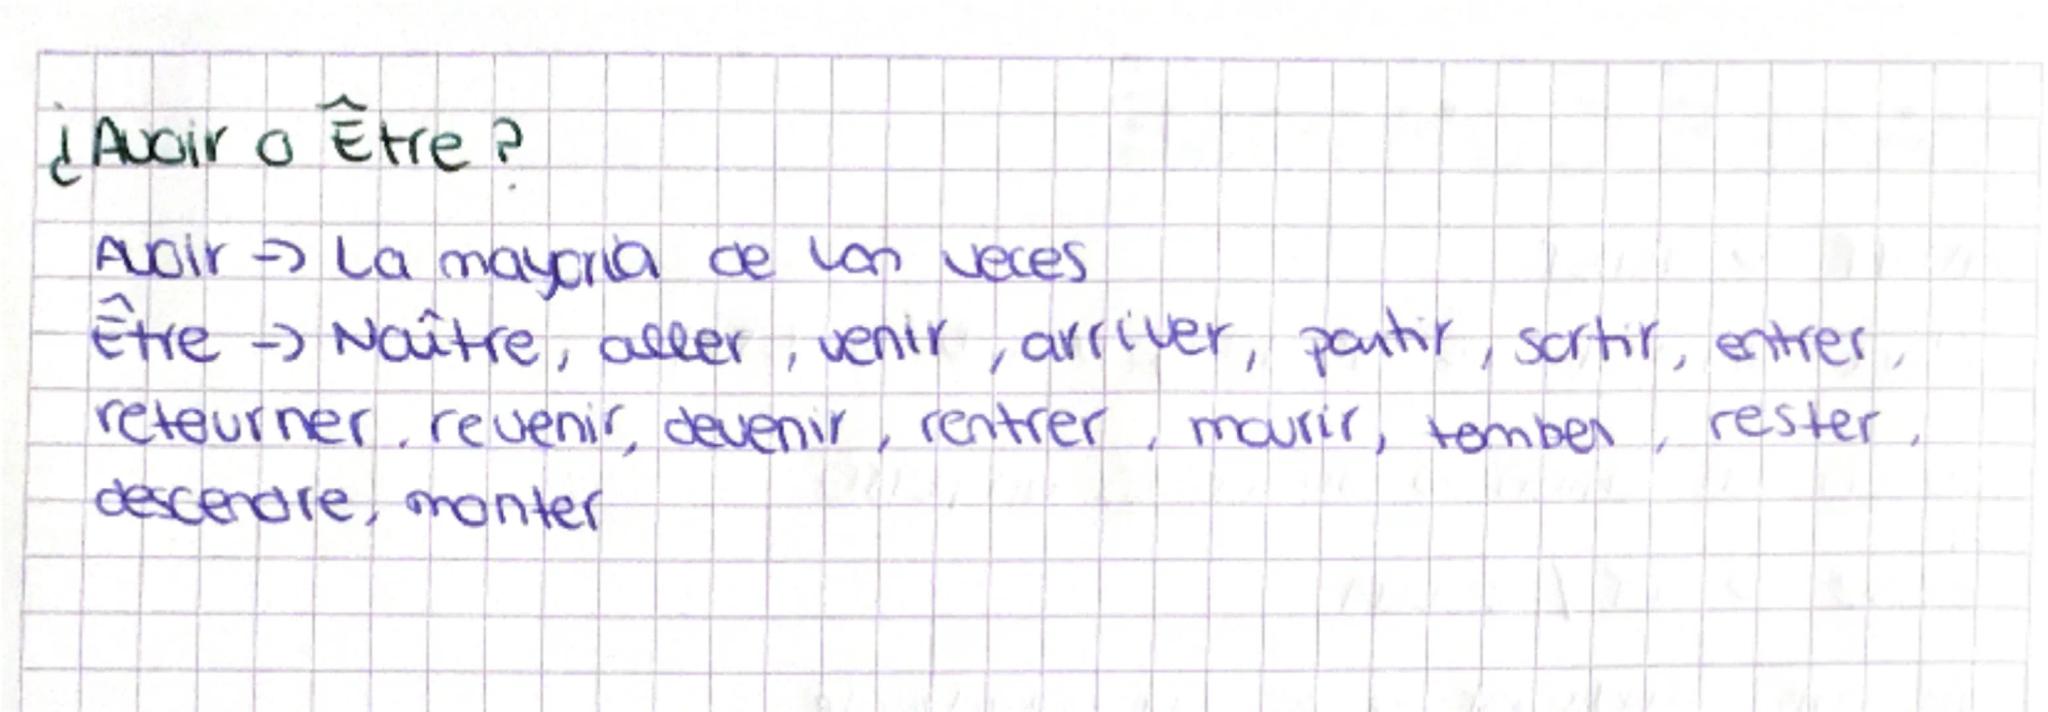 ¿Avoir o Être?
Avoir → La mayoria de las veces
Être → Naître, aller, venir, arriver, partir, sortir, entrer,
reteurner, revenir, devenir, rentrer, mourir, tomber, rester,
descendre, monter